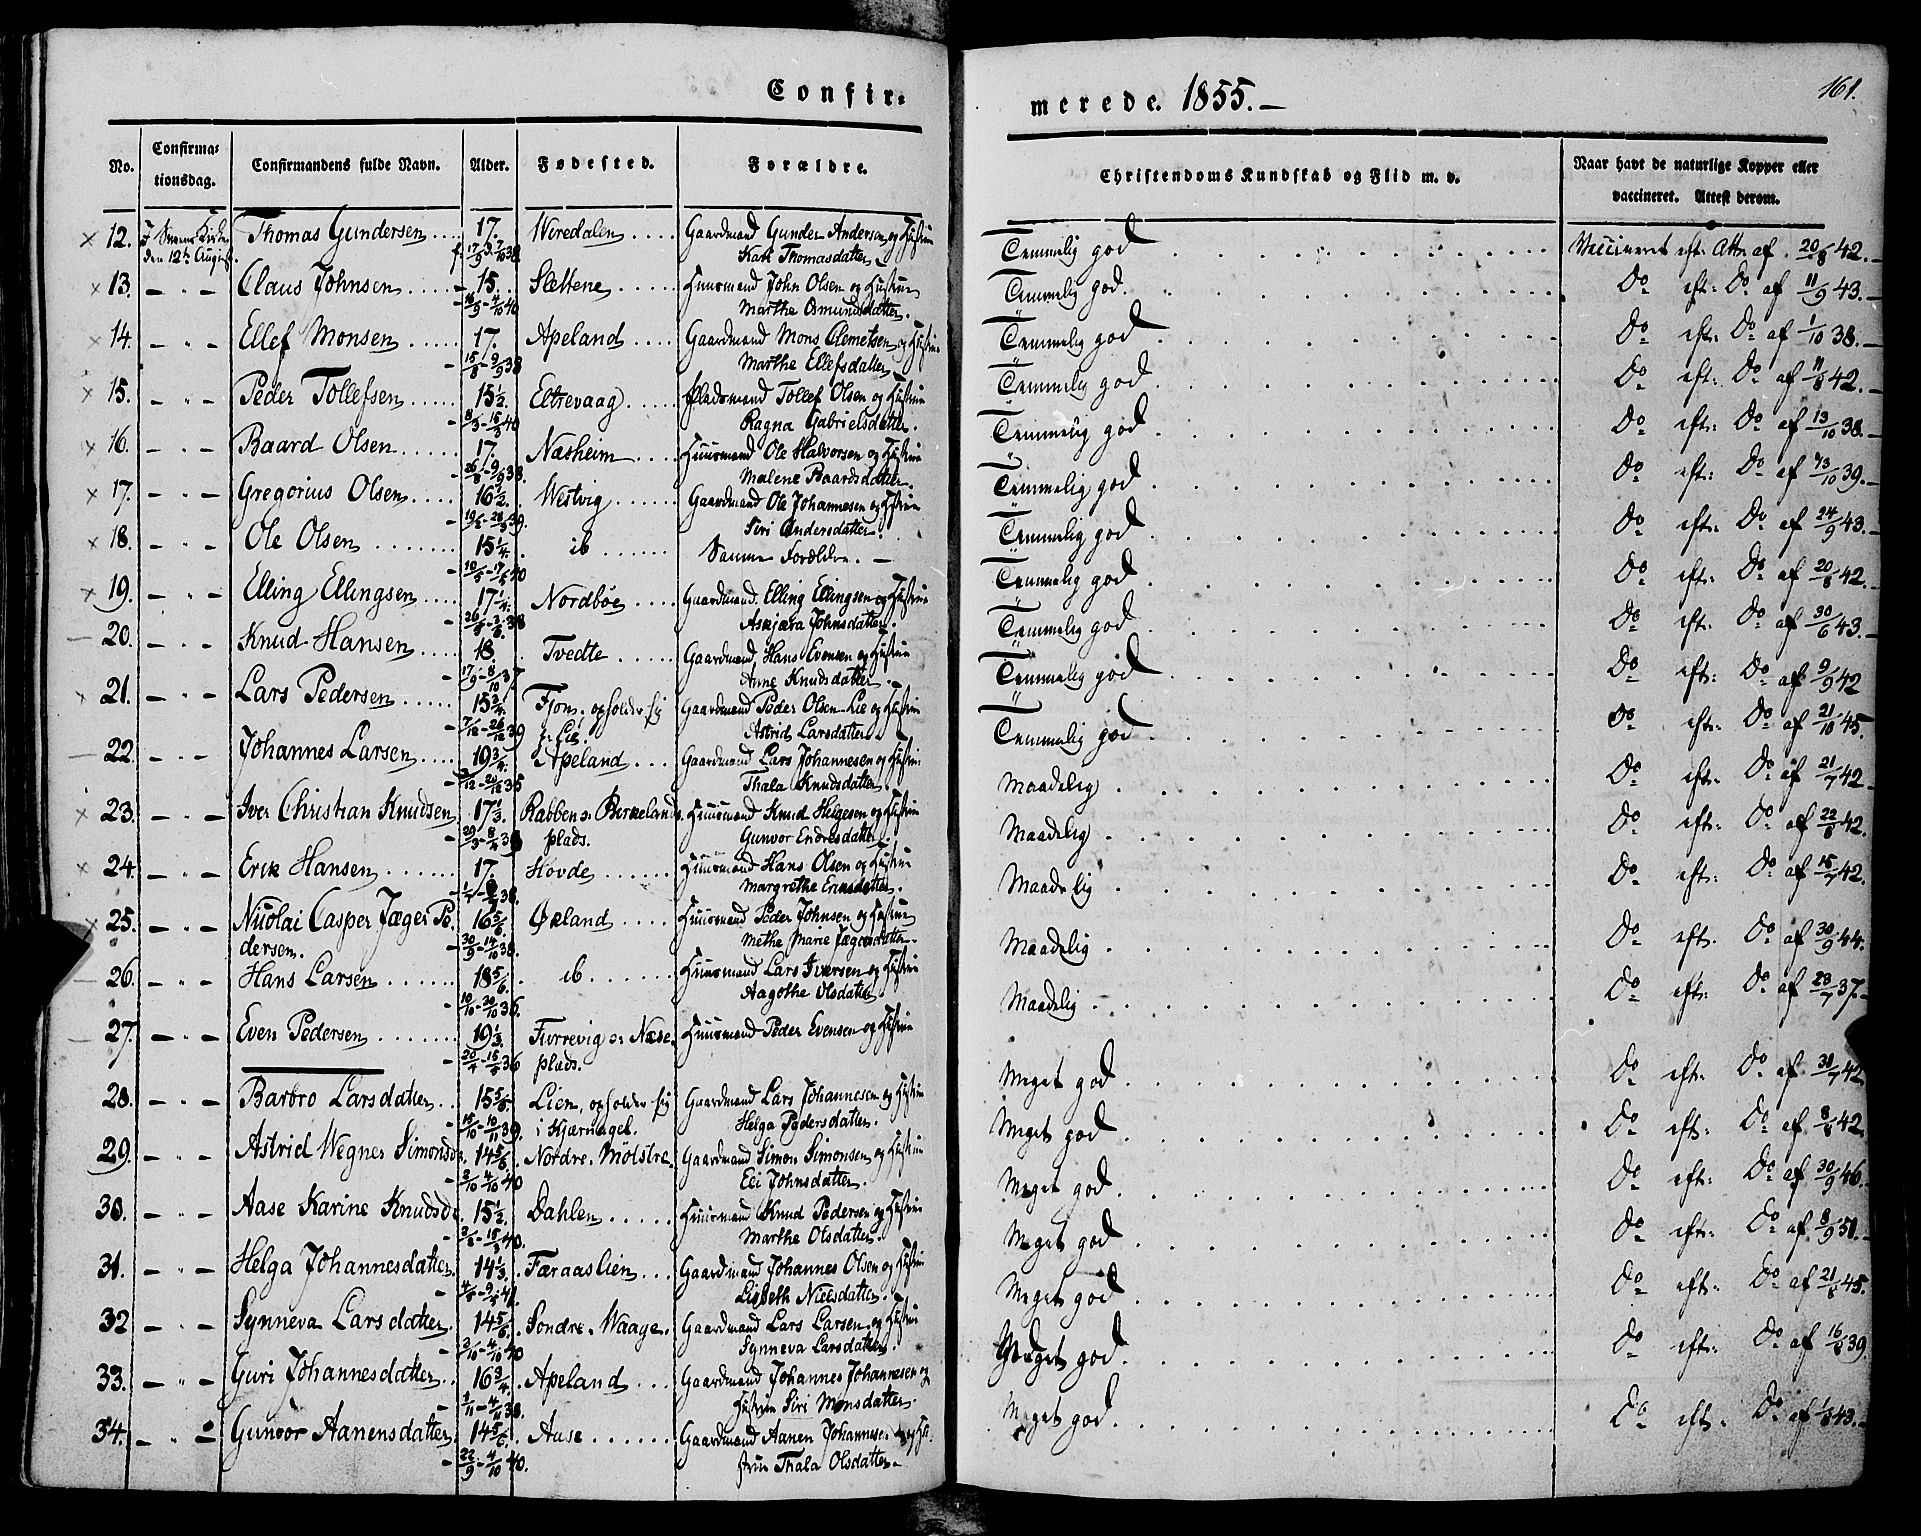 Confir-
merede. 1855.
161.
No. Confirma-tionsdag. Confirmandens fulde Navn. Alder. Fødested. Forældre. Christendoms Kundskab og Flid m. v. Naar havt de naturlige Kopper eller vaccineret. Attest derom.
12. Kirke den 12te August. Thomas Gundersen 17. Weredalen Gaardmand Gunder Andersen og Hustru Kari Thomasdatter Temmelig god Vaccineret eft. Att. af 20/8 42.
13. Claus Johnsen 15. Slettene Huusmand John Olsen og Hustru Marthe Osmundsdatter. 16/9 - 4/10 40 Temmelig god. Do eft: Do af 11/9 43.
14. Ellef Monsen 17. Apeland Gaardmand Mons Clemetsen og Hustru Marthe Ellefsdatter 15/8 - 9/9 38 Temmelig god Do eft: Do af 1/10 38.
15. Peder Tollefsen 15 1/2. Eltrevaag Pladsmand Tollef Olsen og Hustru Ragna Gabrielsdatter. 8/3 - 15/3 40 Temmelig god Do eft: Do af 11/8 42.
16. Baard Olsen 17. Næsheim Huusmand Ole Halvorsen og Hustru Malene Baardsdatter. 26/8 - 9/9 38. Temmelig god Do eft: Do af 13/10 38.
17. Gregorius Olsen 16 1/2. Westvig Gaardmand Ole Johannesen og Hustru Siri Andersdatter. Temmelig god Do eft: Do af 39.
18. Ole Olsen 15 1/4. ib Samme Forældre. Temmelig god Do eft: Do af 24/9 43.
19. Elling Ellingsen 17 1/4. Nordbøe Gaardmand Elling Ellingsen og Hustru Askjæra Johnsdatter. Temmelig god Do eft: Do af 20/8 42.
20. Knud Hansen 18. Tvedte Gaardmand Hans Evensen og Hustru Anne Knudsdatter. 17/9 - 8/10 37 Temmelig god Do eft: Do af 30/6 43.
21. Lars Pedersen 15 3/4. Fjon, opholder sig i Lie. Gaardmand Peder Olsen Lie og Hustru Astrid Larsdatter. 7/12 - 26/12 39 Temmelig god Do eft: Do af 9/9 42
22. Johannes Larsen 19 3/4. Apeland Gaardmand Lars Johannesen og Hustru Thala Knudsdatter. Temmelig god Do eft: Do af 21/10 45.
23. Iver Christian Knudsen 17 1/3. Rabben o: Berkelands plads. Huusmand Knud Helgesen og Hustru Gunvor Endresdatter Maadelig Do eft: Do af 21/7 42
24. Erik Hansen 17. Hovde Huusmand Hans Olsen og Hustru Margrethe Eriksdatter. Maadelig Do eft: Do af 22/8 42.
25. Nicolai Casper Jæger Pedersen. 16 5/6. Økland Huusmand Peder Johnsen og Hustru Methe Marie Jægersdatter. 30/9 - 14/10 38. Maadelig Do eft: Do af 15/7 42.
26. Hans Larsen 18 5/6. ib Huusmand Lars Iversen og Hustru Aagothe Olsdatter. 10/10 - 30/10 36. Maadelig Do eft: Do af 30/9 44.
27. Even Pedersen 19 1/3. Furrevig o: Næse plads. Huusmand Peder Evensen og Hustru Maadelig Do eft: Do af 23/7 37.
28. Barbro Larsdatter 15 5/6. Lien, opholder sig i Kjærnagel. Gaardmand Lars Johannesen og Hustru Helga Pedersdatter. 15/10 - 10/11 39. Meget god Do eft: Do af 42
29. Astrid Wegner Simonsdr. 14 5/6. Nordre Mølstre Gaardmand Simon Simonsen og Hustru Eli Johnsdatter. 2/10 - 4/10 40 Meget god Do eft: Do af 8/8 42
30. Aase Karine Knudsdr. 15 1/2. Dahlen Huusmand Knud Pedersen og Hustru Marthe Olsdatter. Meget god Do eft: Do af 30/9 46.
31. Helga Johannesdatter. 14 1/3. Færaaslien Gaardmand Johannes Olsen og Hustru Lisbeth Nielsdatter. Meget god Do eft: Do af 8/9 51.
32 Synneva Larsdatter. 14 5/6. Søndre Waage. Gaardmand Lars Larsen og Hustru Synneva Larsdatter. Meget god Do eft: Do af 21/8 45.
33. Guri Johannesdatter 16 3/4. Apeland Gaardmand Johannes Johannesen og Hustru Siri Monsdatter. Meget god. Do eft: Do af 16/8 39.
34. Gunvor Aanensdatter 14 5/6. Aase Gaardmand Aanen Johannesen og Hustru Thala Olsdatter. 22/9 - 4/10 40. Meget god. Do eft: Do af 43.